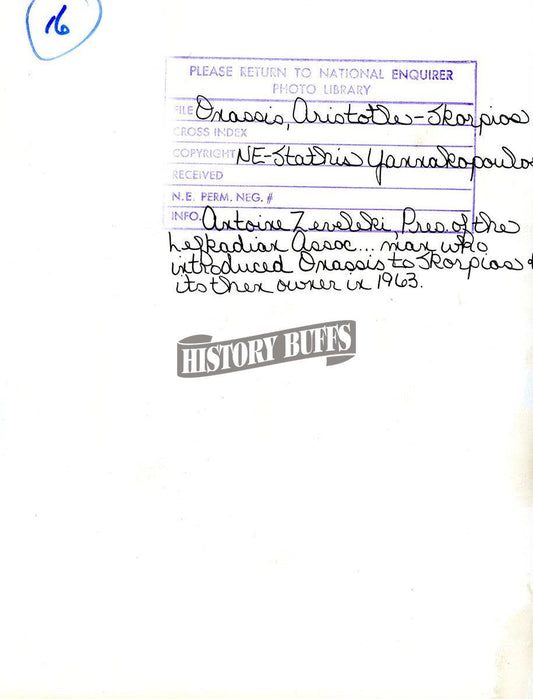 16
PLEASE RETURN TO NATIONAL ENQUIRER
PHOTO LIBRARY
FILE Onassis, Aristotle-Skorpios
CROSS INDEX
COPYRIGHT NE-Stathis Yannakopoulos
RECEIVED
N.E. PERM. NEG. #
INFO. Antoine Zeveleki, Pres. of the
Lefkadian Assoc... man who
introduced Onassis to Skorpios &
its then owner in 1963.
HISTORY BUFFS